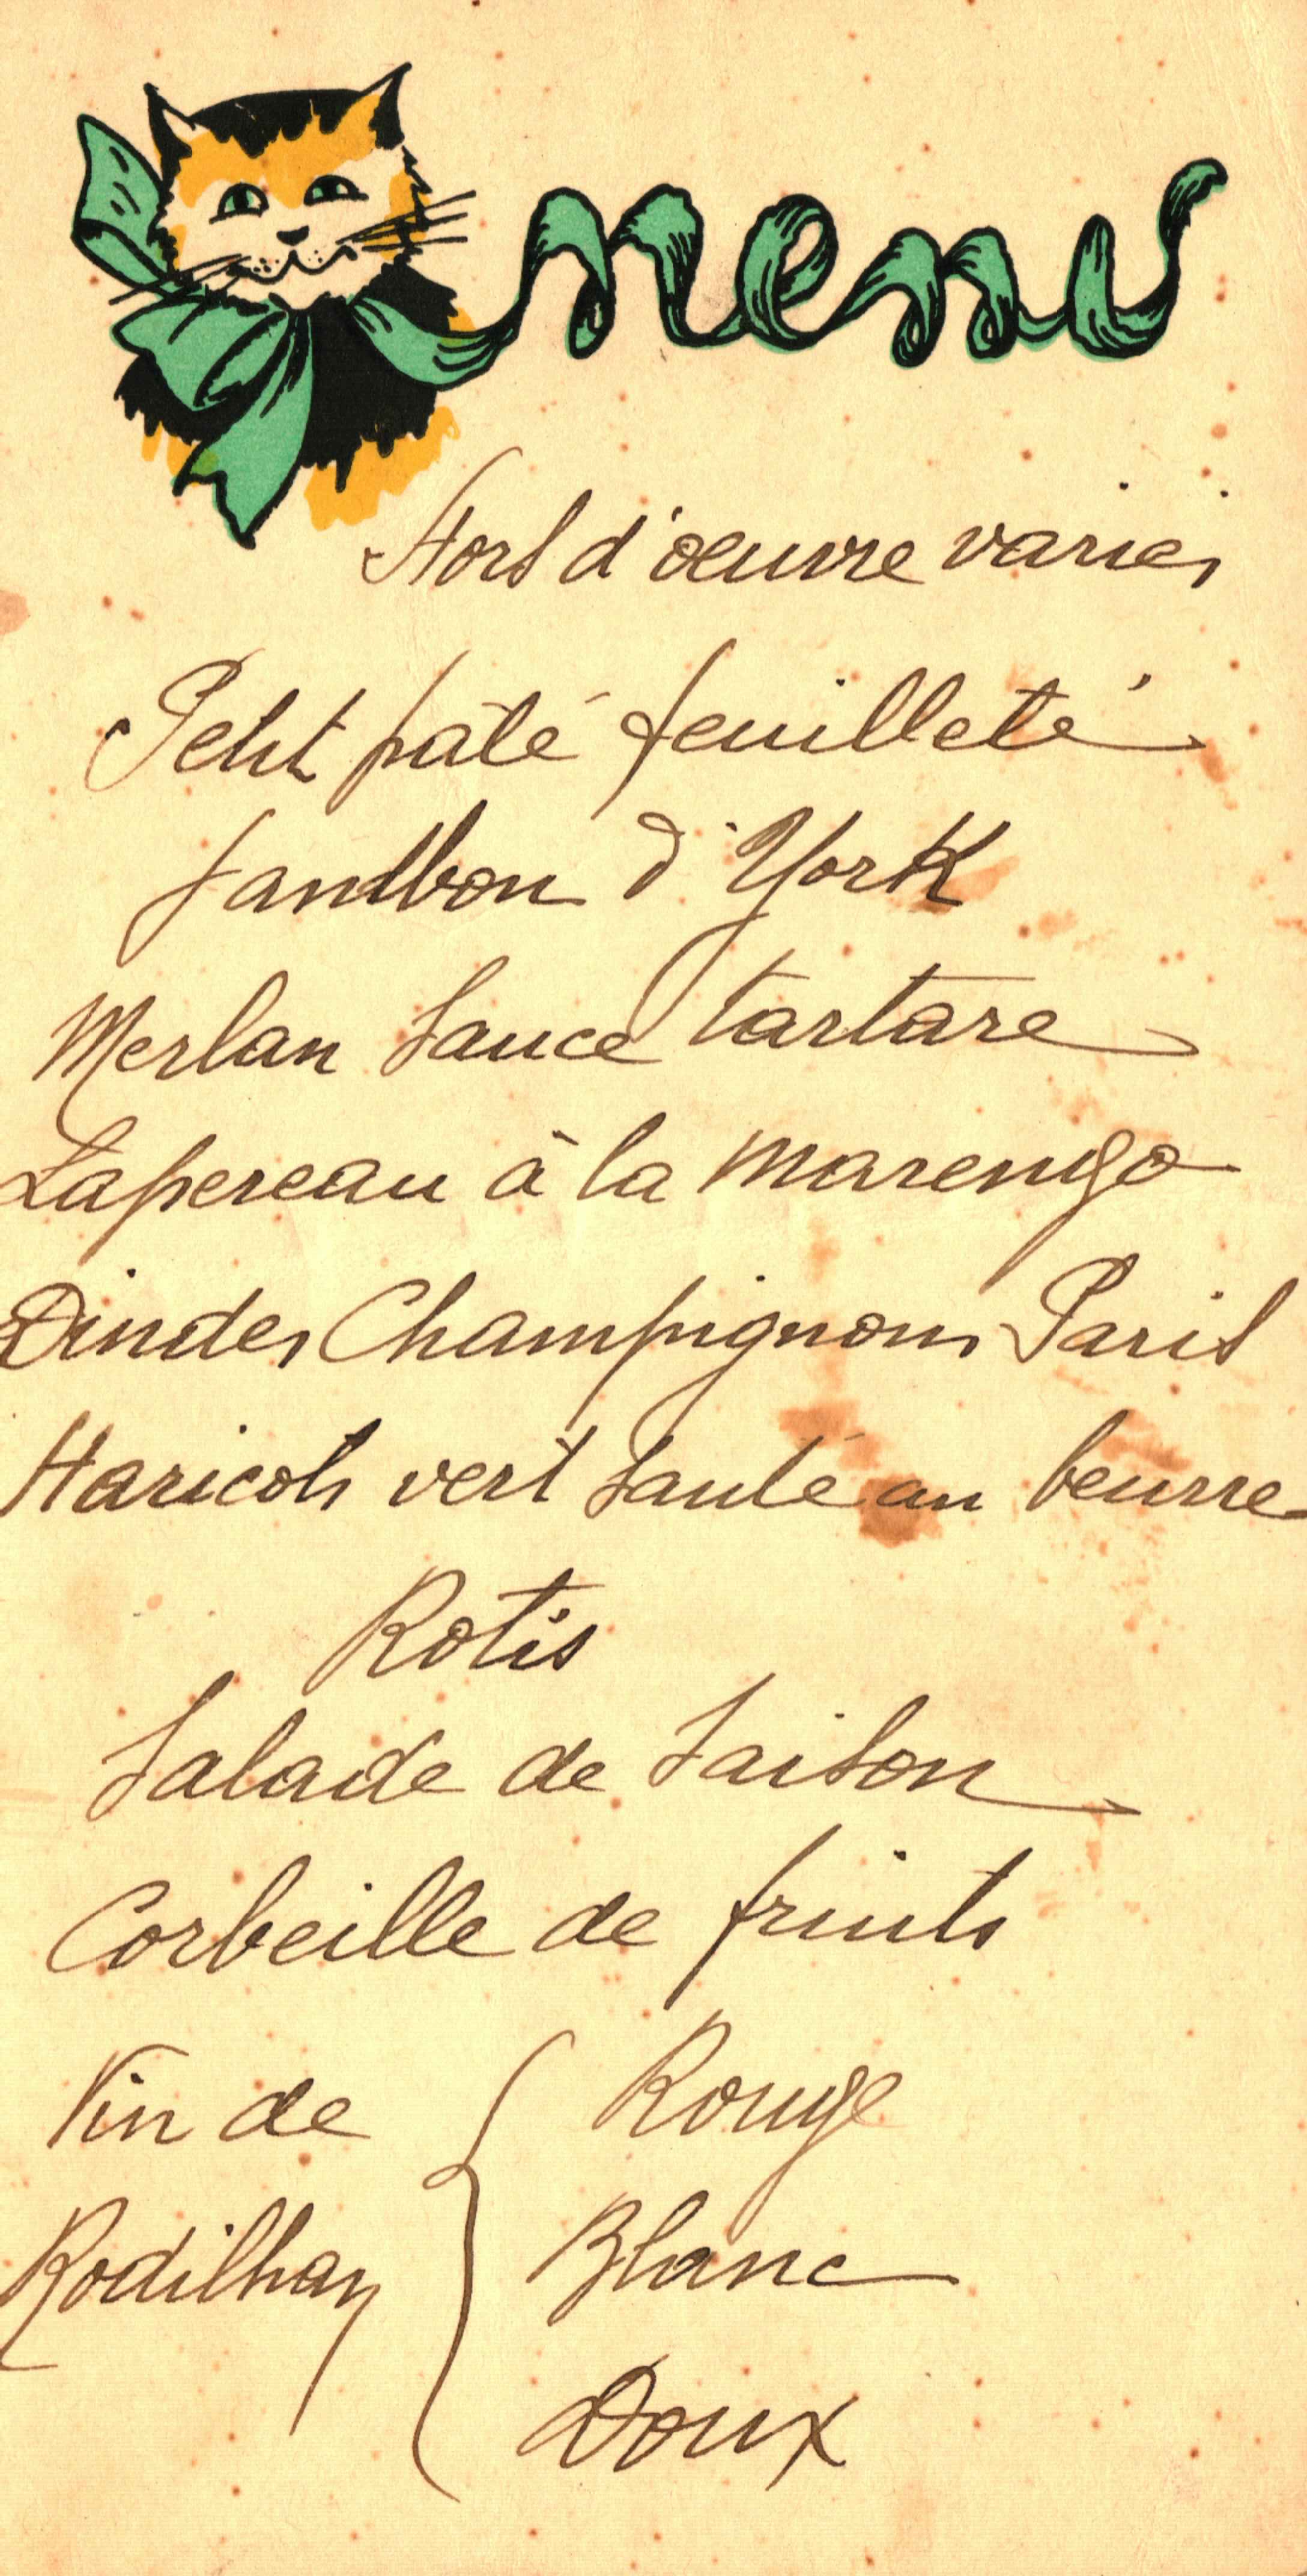 menu
Hors d'oeuvre varies
Petit pâté feuilleté
Jambon d'York
Merlan Sauce tartare
Lapereau à la marengo
Dindes Champignons Paris
Haricots vert Sauté au beurre
Rotis
Salade de Saison
Corbeille de fruits
Vin de Rodilhan
Rouge
Blanc
Doux